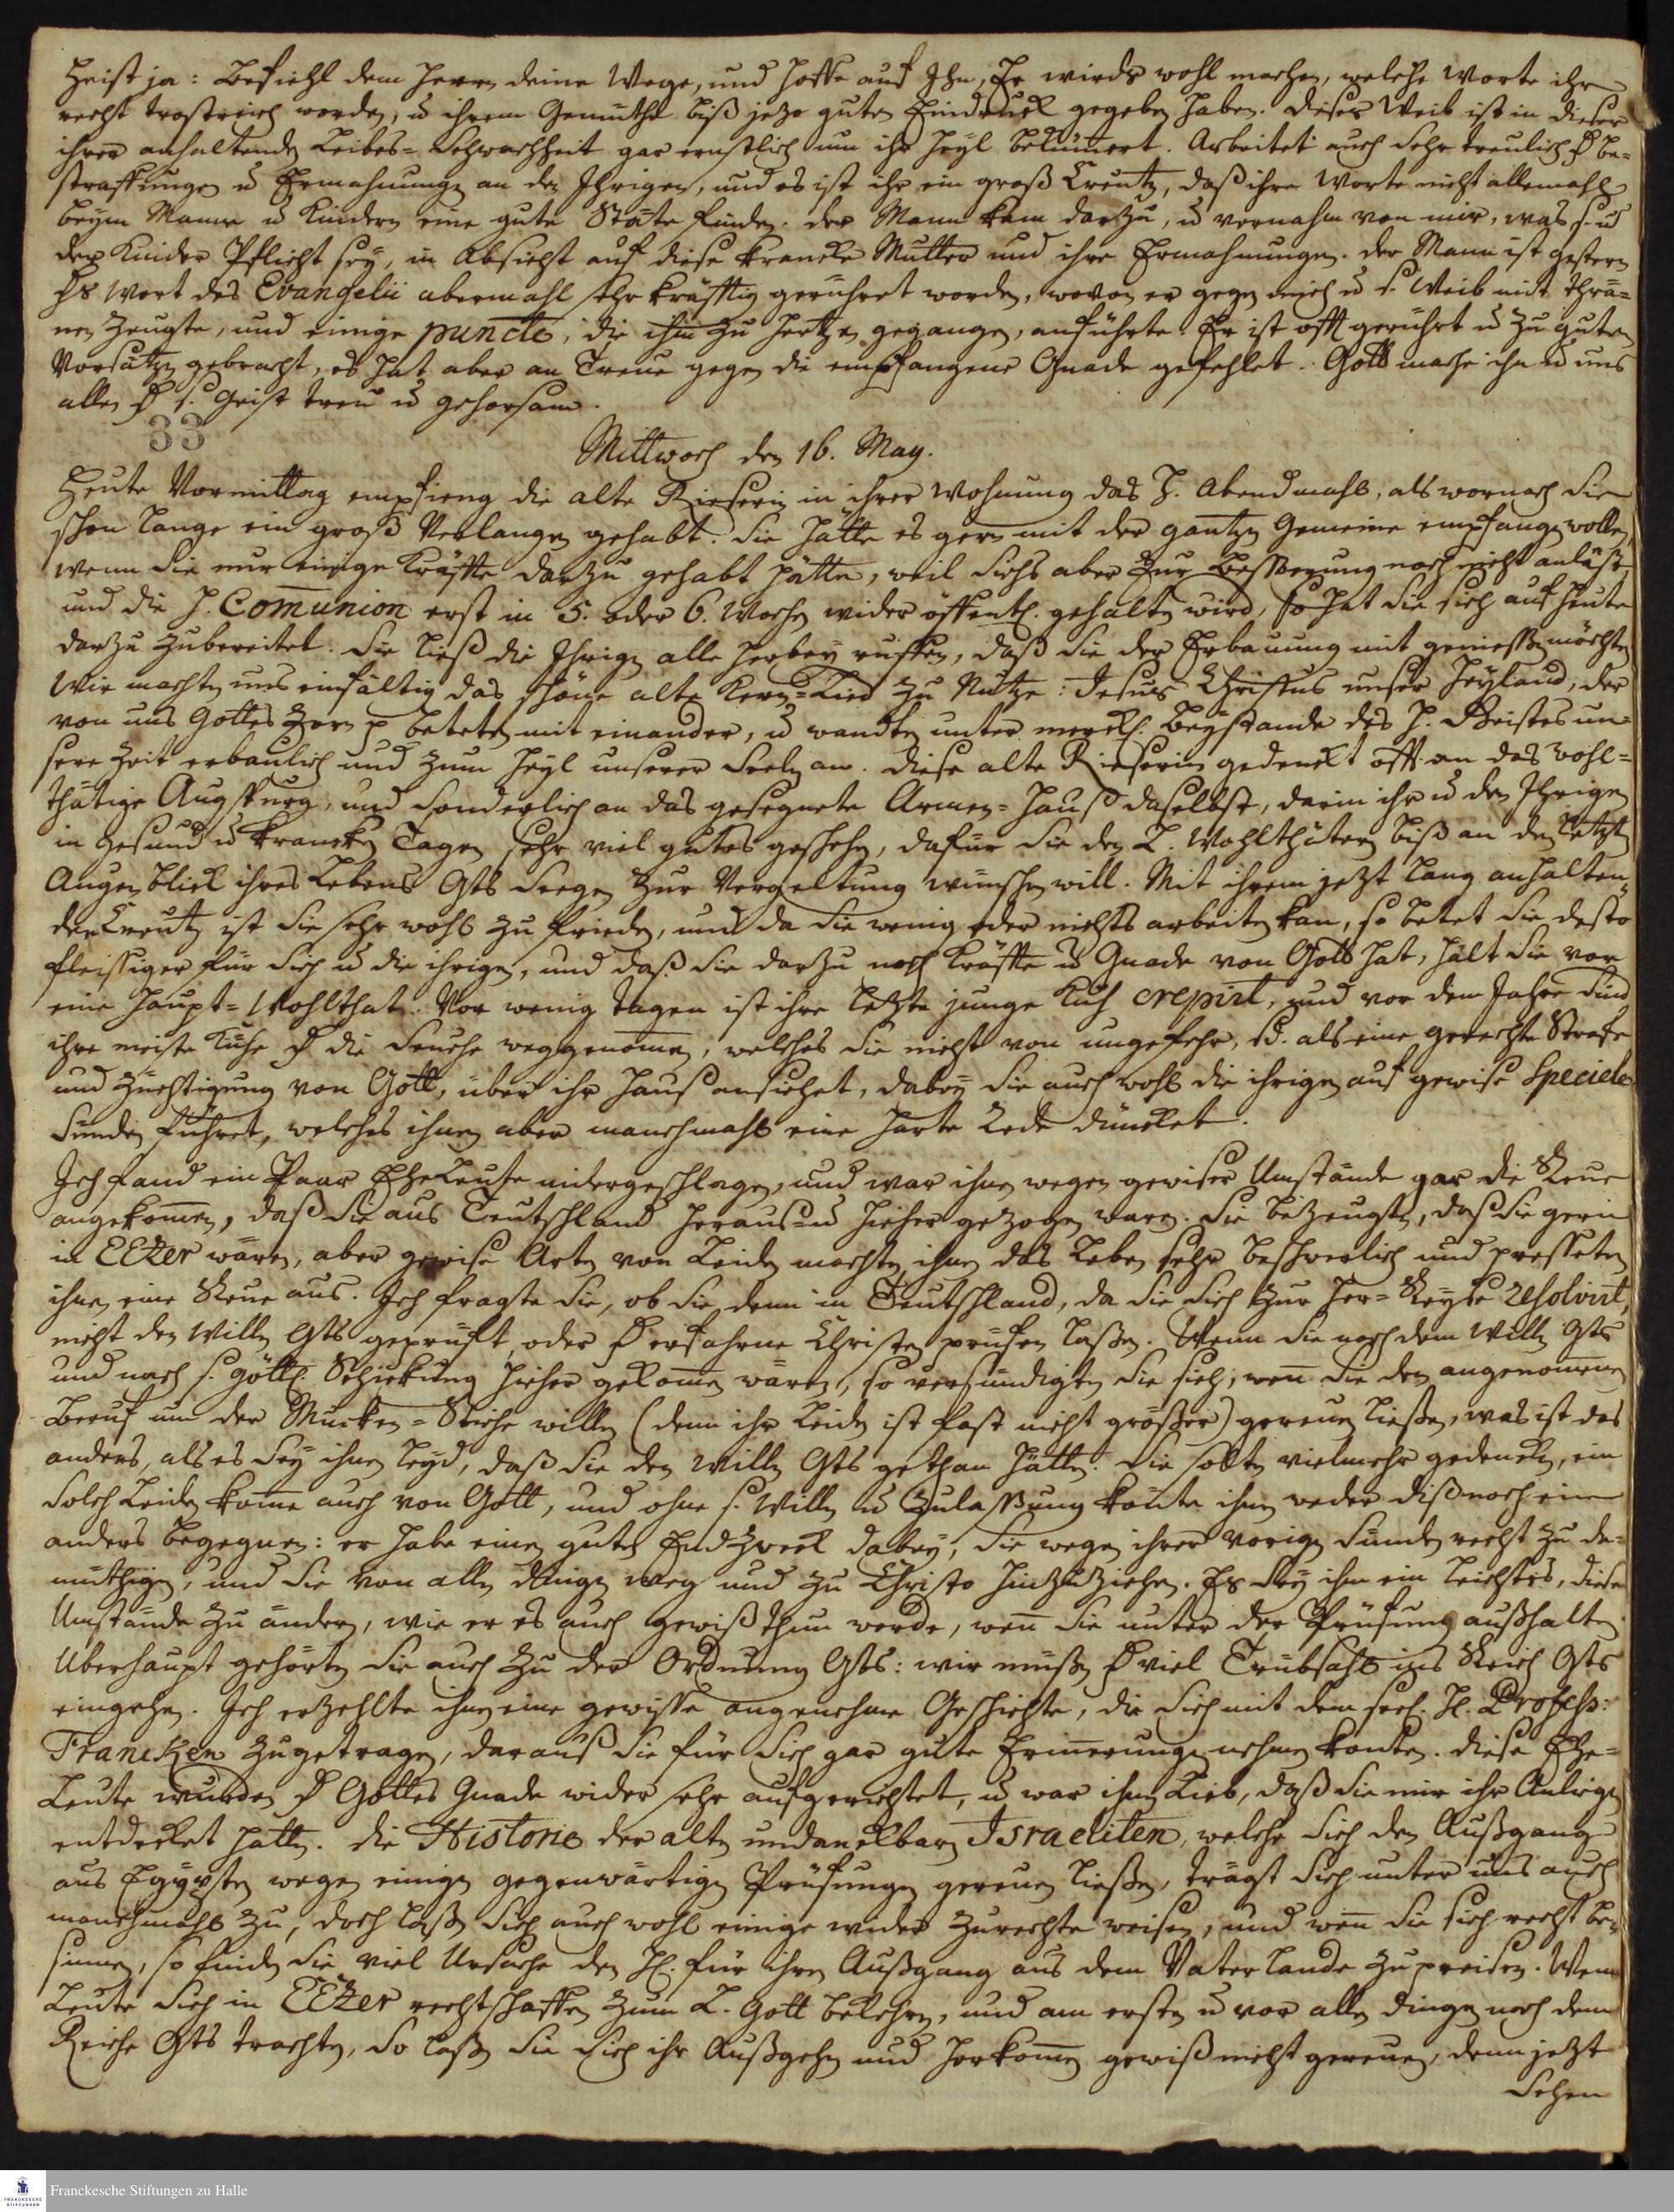 heist ja: Befiehl dem Herrn deine Wege, und hoffe auf Ihn, Er wirds wohl machen, welche Worte ihr
recht trostreich worden, u. ihrem Gemüthe biß jezo guten Eindruck gegeben haben. Dieses Weib ist in dieser
ihrer anhaltenden Leibes-Schwachheit gar ernstlich um ihr Heyl bekümert. Arbeitet auch sehr treulich d. Be-
straffungen u. Ermahnungen an den Ihrigen, und es ist ihr ein groß Creutz, daß ihre Worte nicht allemahl
beym Manne u. Kindern eine gute Stäte finden. Der Mann kam darzu, u. vernahm von mir, was s. u.
der Kinder Pflicht sey, in Absicht auf diese krancke Mutter und ihre Ermahnungen. Der Mann ist gestern
ds Wort des Evangelii abermahl sehr kräfftig gerühret worden, wovon er gegen mich u. s. Weib mit Thrä-
nen zeugte, und einige puncte, die ihm zu Hertzen gegangen, anführte. Er ist offt gerührt u. zu guten
Vorsätzen gebracht, es hat aber an Treue gegen die empfangene Gnade gefehlet. Gott mache ihn u. uns
alle d. s. Geist treu u. gehorsam.
33
Mittwoch den 16. May.
Heute Vormittag empfieng die alte Rieserin in ihrer Wohnung das H. Abendmahl, als wornach Sie
schon lange ein groß Verlangen gehabt. Sie hätte es gern mit der gantzen Gemeine empfangen wollen,
wenn Sie nur einige Kräffte darzu gehabt hätte, weil sichs aber zur Besserung noch nicht anläst,
und die H. Comunion erst in 5. oder 6. Wochen wider öffentl. gehalten wird, so hat Sie sich auf heute
darzu zubereitet. Sie ließ die Ihrigen alle herbey ruffen, daß Sie der Erbauung mit geniessen möchten.
Wir machten uns einfältig das schöne alte Kern-Lied zu Nutze: Jesus Christus unser Heyland, der
von uns Gottes Zorn p beteten mit einander, u. wandten unter merckl. Beystande des H. Geistes un-
sere Zeit erbaulich und zum Heyl unserer Seelen an. Diese alte Rieserin gedenckt offt an das wohl-
thätige Augspurg, und sonderlich an das gesegnete Armen-Hauß daselbst, darin ihr u. den Ihrigen
in gesund u. krancken Tagen sehr viel gutes geschehen, dafür Sie den L. Wohlthätern biß an den letzten
Augenblick ihres Lebens Gts Seegen zur Vergeltung wünschen will. Mit ihrem jetzt lang anhalten-
den Creutz ist Sie sehr wohl zu frieden, und da Sie wenig oder nichts arbeiten kan, so betet Sie desto
fleissiger für Sich u. die ihrigen, und daß Sie darzu noch Kräffte u. Gnade von Gott hat, hält Sie vor
eine Haupt-Wohlthat. Vor wenig Tagen ist ihre letzte junge Kuh crepirt, und vor dem Jahre sind
ihre meiste Kühe d. die Seuche weggenomen, welches Sie nicht von ungefehr, sd. als eine gerechte Strafe
und Züchtigung von Gott, über ihr Haus ansiehet, dabey Sie auch wohl die ihrigen auf gewise Speciele
Sünden führet, welches ihnen aber manchmahl eine harte Rede düncket.
Ich fand ein Paar Eheleute nidergeschlagen, und war ihnen wegen gewiser Umstände gar die Reue
angekomen, daß Sie aus Teutschland heraus u. hieher gezogen waren. Sie bezeugten, daß Sie gern
in EEzer wären, aber gewise Arten von Leiden machten ihnen das Leben sehr beschwerlich und presseten
ihnen eine Reue aus. Ich fragte Sie, ob Sie denn in Teutschland, da Sie sich zur Her-Reyse resolvirt,
nicht den Willen Gts geprüft, oder d. erfahrne Christen prüfen laßen. Wenn Sie nach dem Willen Gts
und nach s. göttl. Schickung hieher gekomen wären, so versündigten Sie sich, wen Sie den angenomenen
Beruf um der Mucken-Stiche willen (denn ihr Leiden ist fast nicht größer) gereuen ließen, was ist das
anders, als es sey ihnen leyd, daß Sie den Willen Gts gethan hätten. Sie solten vielmehr gedencken, ein
solch Leiden kome auch von Gott, und ohne s. Willen u. Zulassung könte ihnen weder diß noch ein
anders begegnen: er habe einen guten Endzweck dabey, Sie wegen ihrer vorigen Sünden recht zu de-
müthigen, und Sie von allen Dingen weg und zu Christo hinzuziehen. Es sey ihm ein leichtes, diese
Umstände zu ändern, wie er es auch gewiß thun werde, wen Sie unter der Prüfung außhalten.
Uberhaupt gehörten Sie auch zu der Ordnung Gts: wir müßen d. viel Trübsahl ins Reich Gts
eingehen. Ich erzehlte ihnen eine gewisse angenehme Geschichte, die Sich mit dem seel. H. Profess:
Francken zugetragen, darauß Sie für Sich gar gute Erinerungen nehmen konten. Diese Ehe-
Leute wurden d. Gottes Gnade wider sehr aufgerichtet, u. war ihnen lieb, daß Sie mir ihr Anligen
entdecket hatten. Die Historie der alten undanckbaren Israeliten, welche Sich den Außgang
aus Egypten wegen einigen gegenwärtigen Prüfungen gereuen ließen, trägt Sich unter uns auch
manchmahl zu, doch laßen Sich auch wohl einige wider zurechte weisen, und wen Sie sich recht be-
sinnen, so finden Sie viel Ursache den H. für ihren Außgang aus dem Vaterlande zu preisen. Wenn
Leute Sich in EEzer rechtschaffen zum L. Gott bekehren, und am ersten u. vor allen Dingen nach dem
Reiche Gts trachten, so laßen Sie Sich ihr Außgehen und Herkomen gewiß nicht gereuen, denn jetzt
Sehen
Franckesche Stiftungen zu Halle